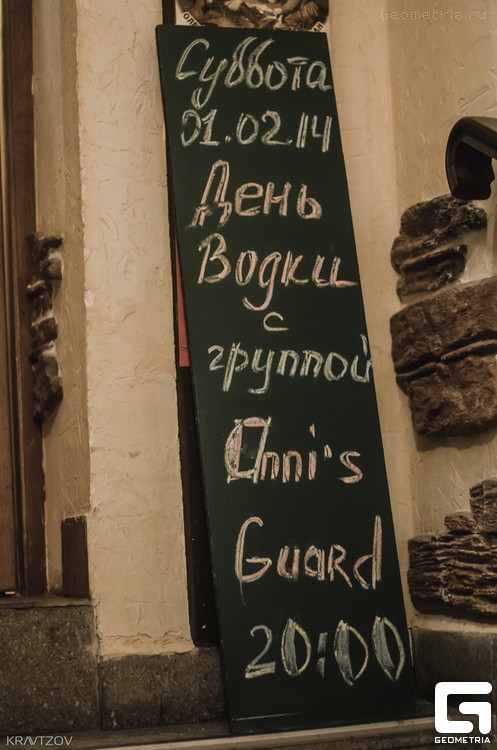 Geometria.ru
Суббота
01.02.14
День
Водки
с
группой
Onni's
Guard
20:00
KRAVTZOV
GEOMETRIA